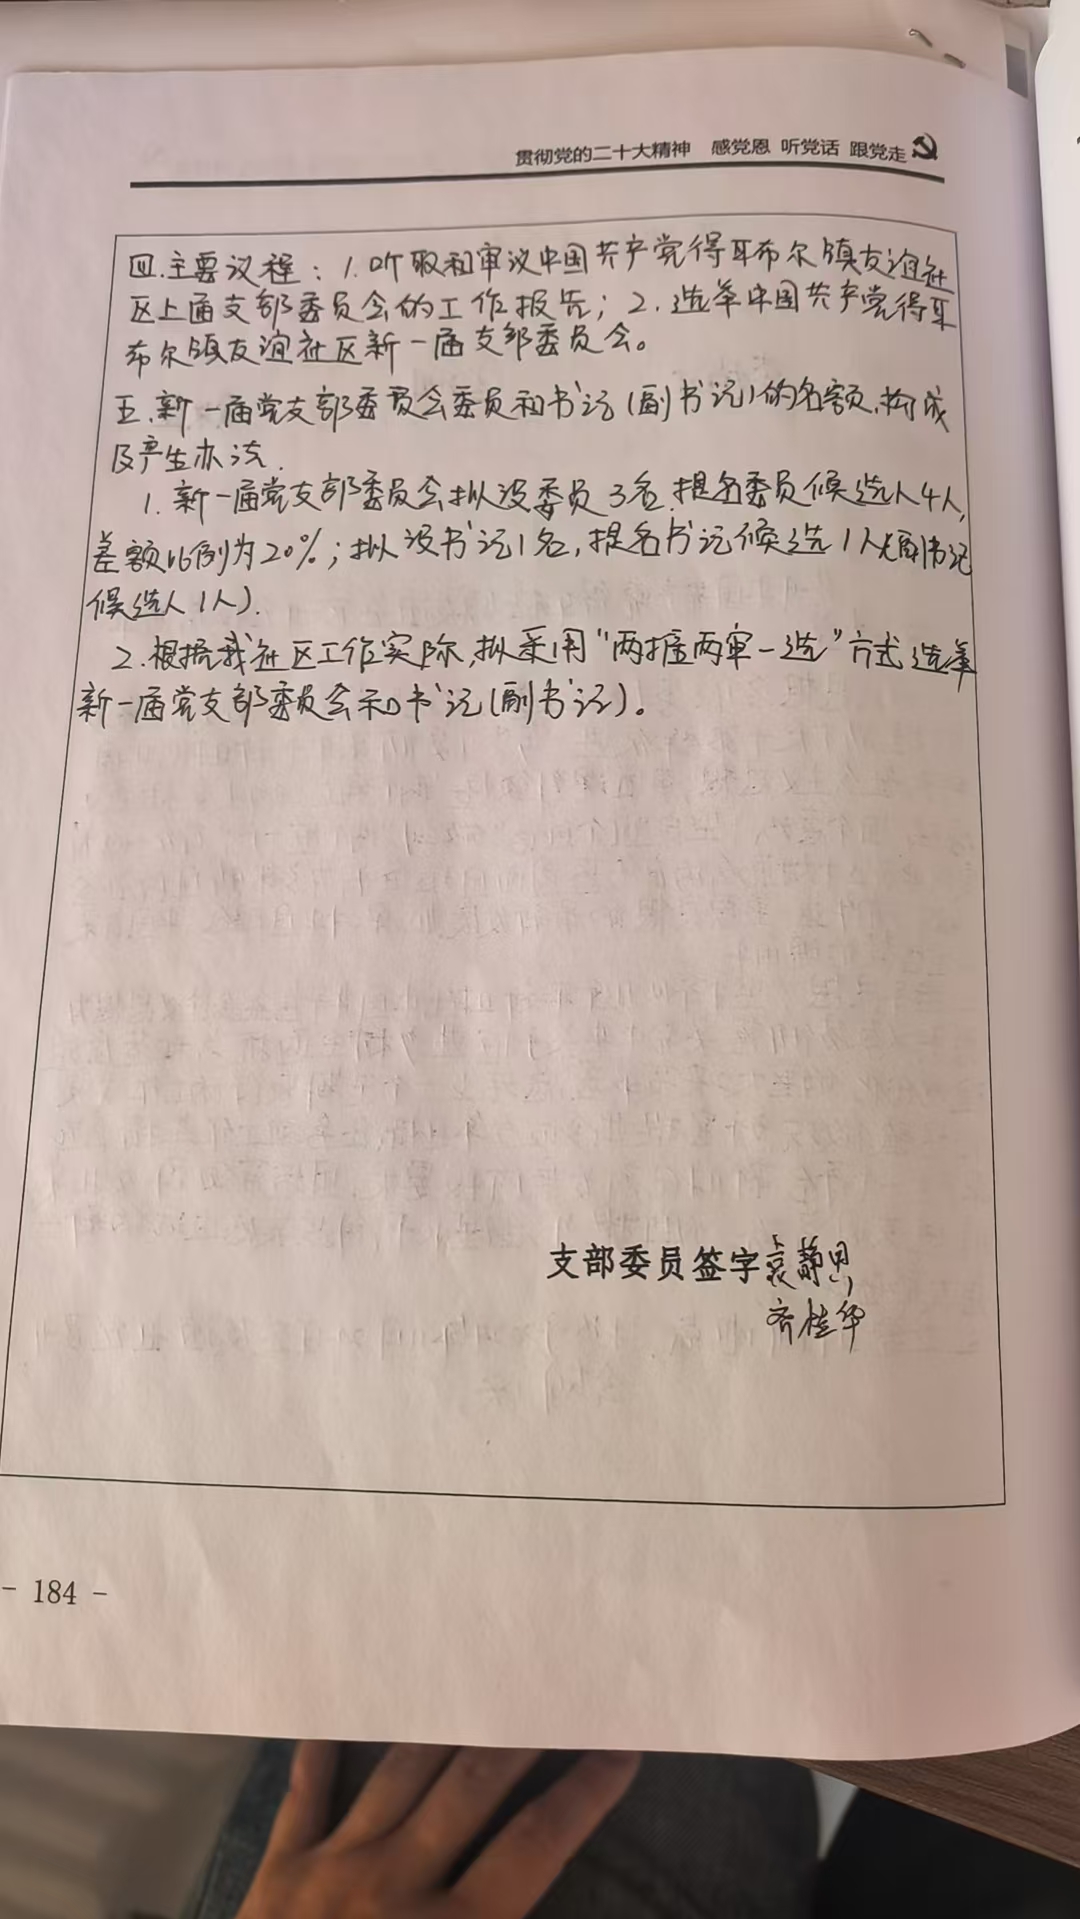 贯彻党的二十大精神 感党恩 听党话 跟党走
四.主要议程：1.听取和审议中国共产党得耳布尔镇友谊社
区上届支部委员会的工作报告；2.选举中国共产党得耳
布尔镇友谊社区新一届支部委员会。
五.新一届党支部委员会委员和书记(副书记)的名额、构成
及产生办法.
1.新一届党支部委员会拟设委员3名.提名委员候选人4人,
差额比例为20%；拟设书记1名,提名书记候选1人(副书记
候选人1人).
2.根据我社区工作实际,拟采用"两推两审一选"方式选举
新一届党支部委员会和书记(副书记)。
支部委员签字袁静思
齐桂华
- 184 -